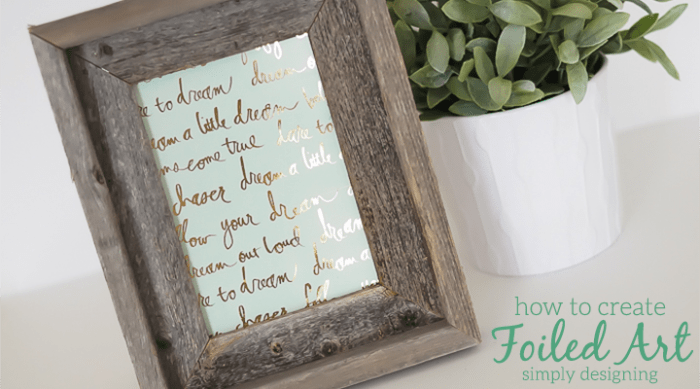 dream o
re to dream dream
am a little dream
ms come true dare to
chaser dream a little
llow your dream
dream out loud dream
re to dream dream a
chaser
how to create
Foiled Art
simply designing